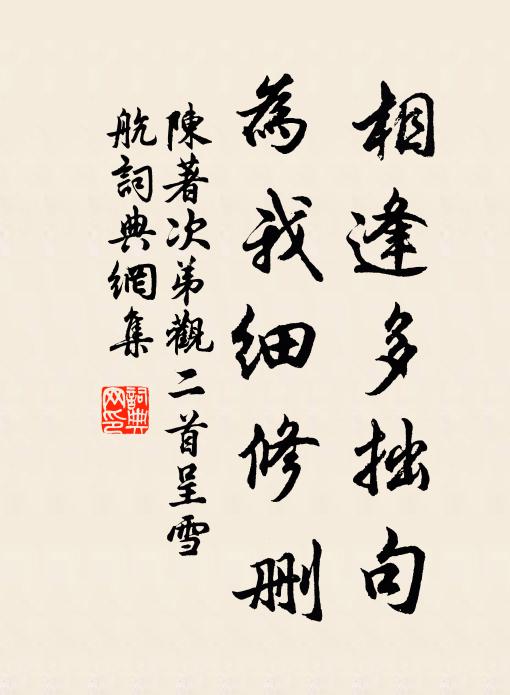 相逢多拙句
為我細修刪
陳著次弟觀二首呈雪
航詞典網集
詞典网印